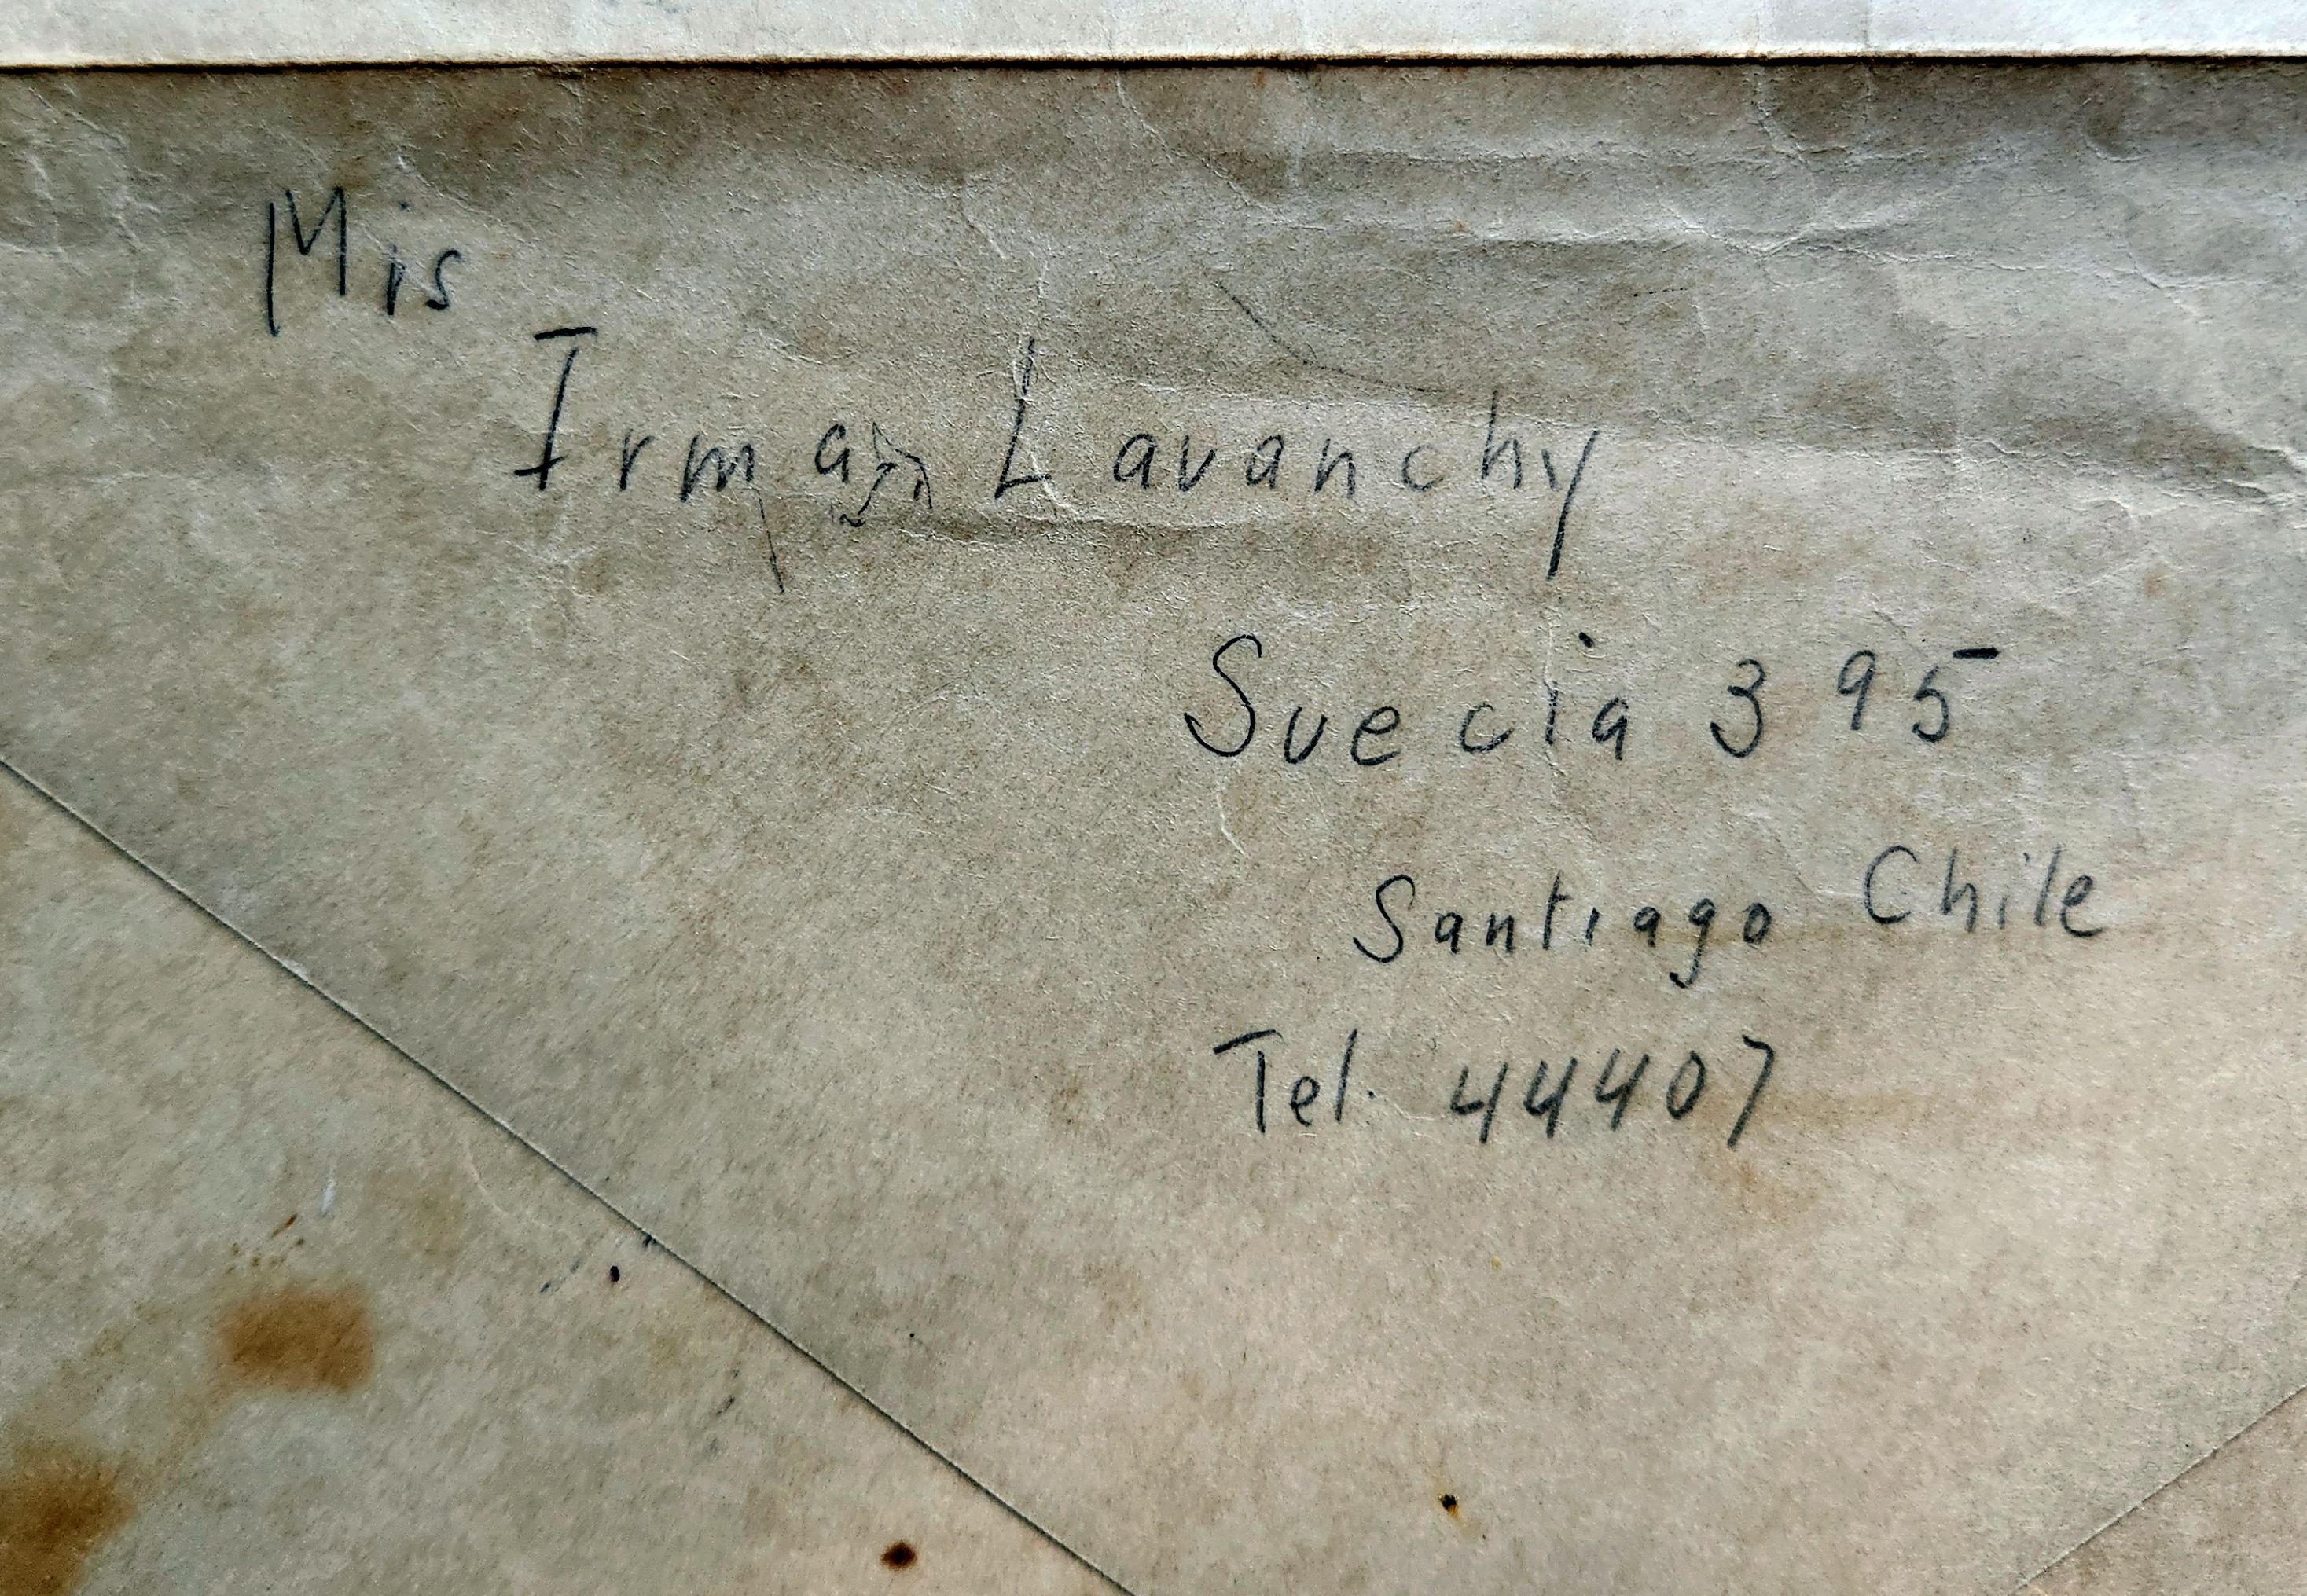 Mis
Irma Lavanchy
Suecia 395
Santiago Chile
Tel. 44407